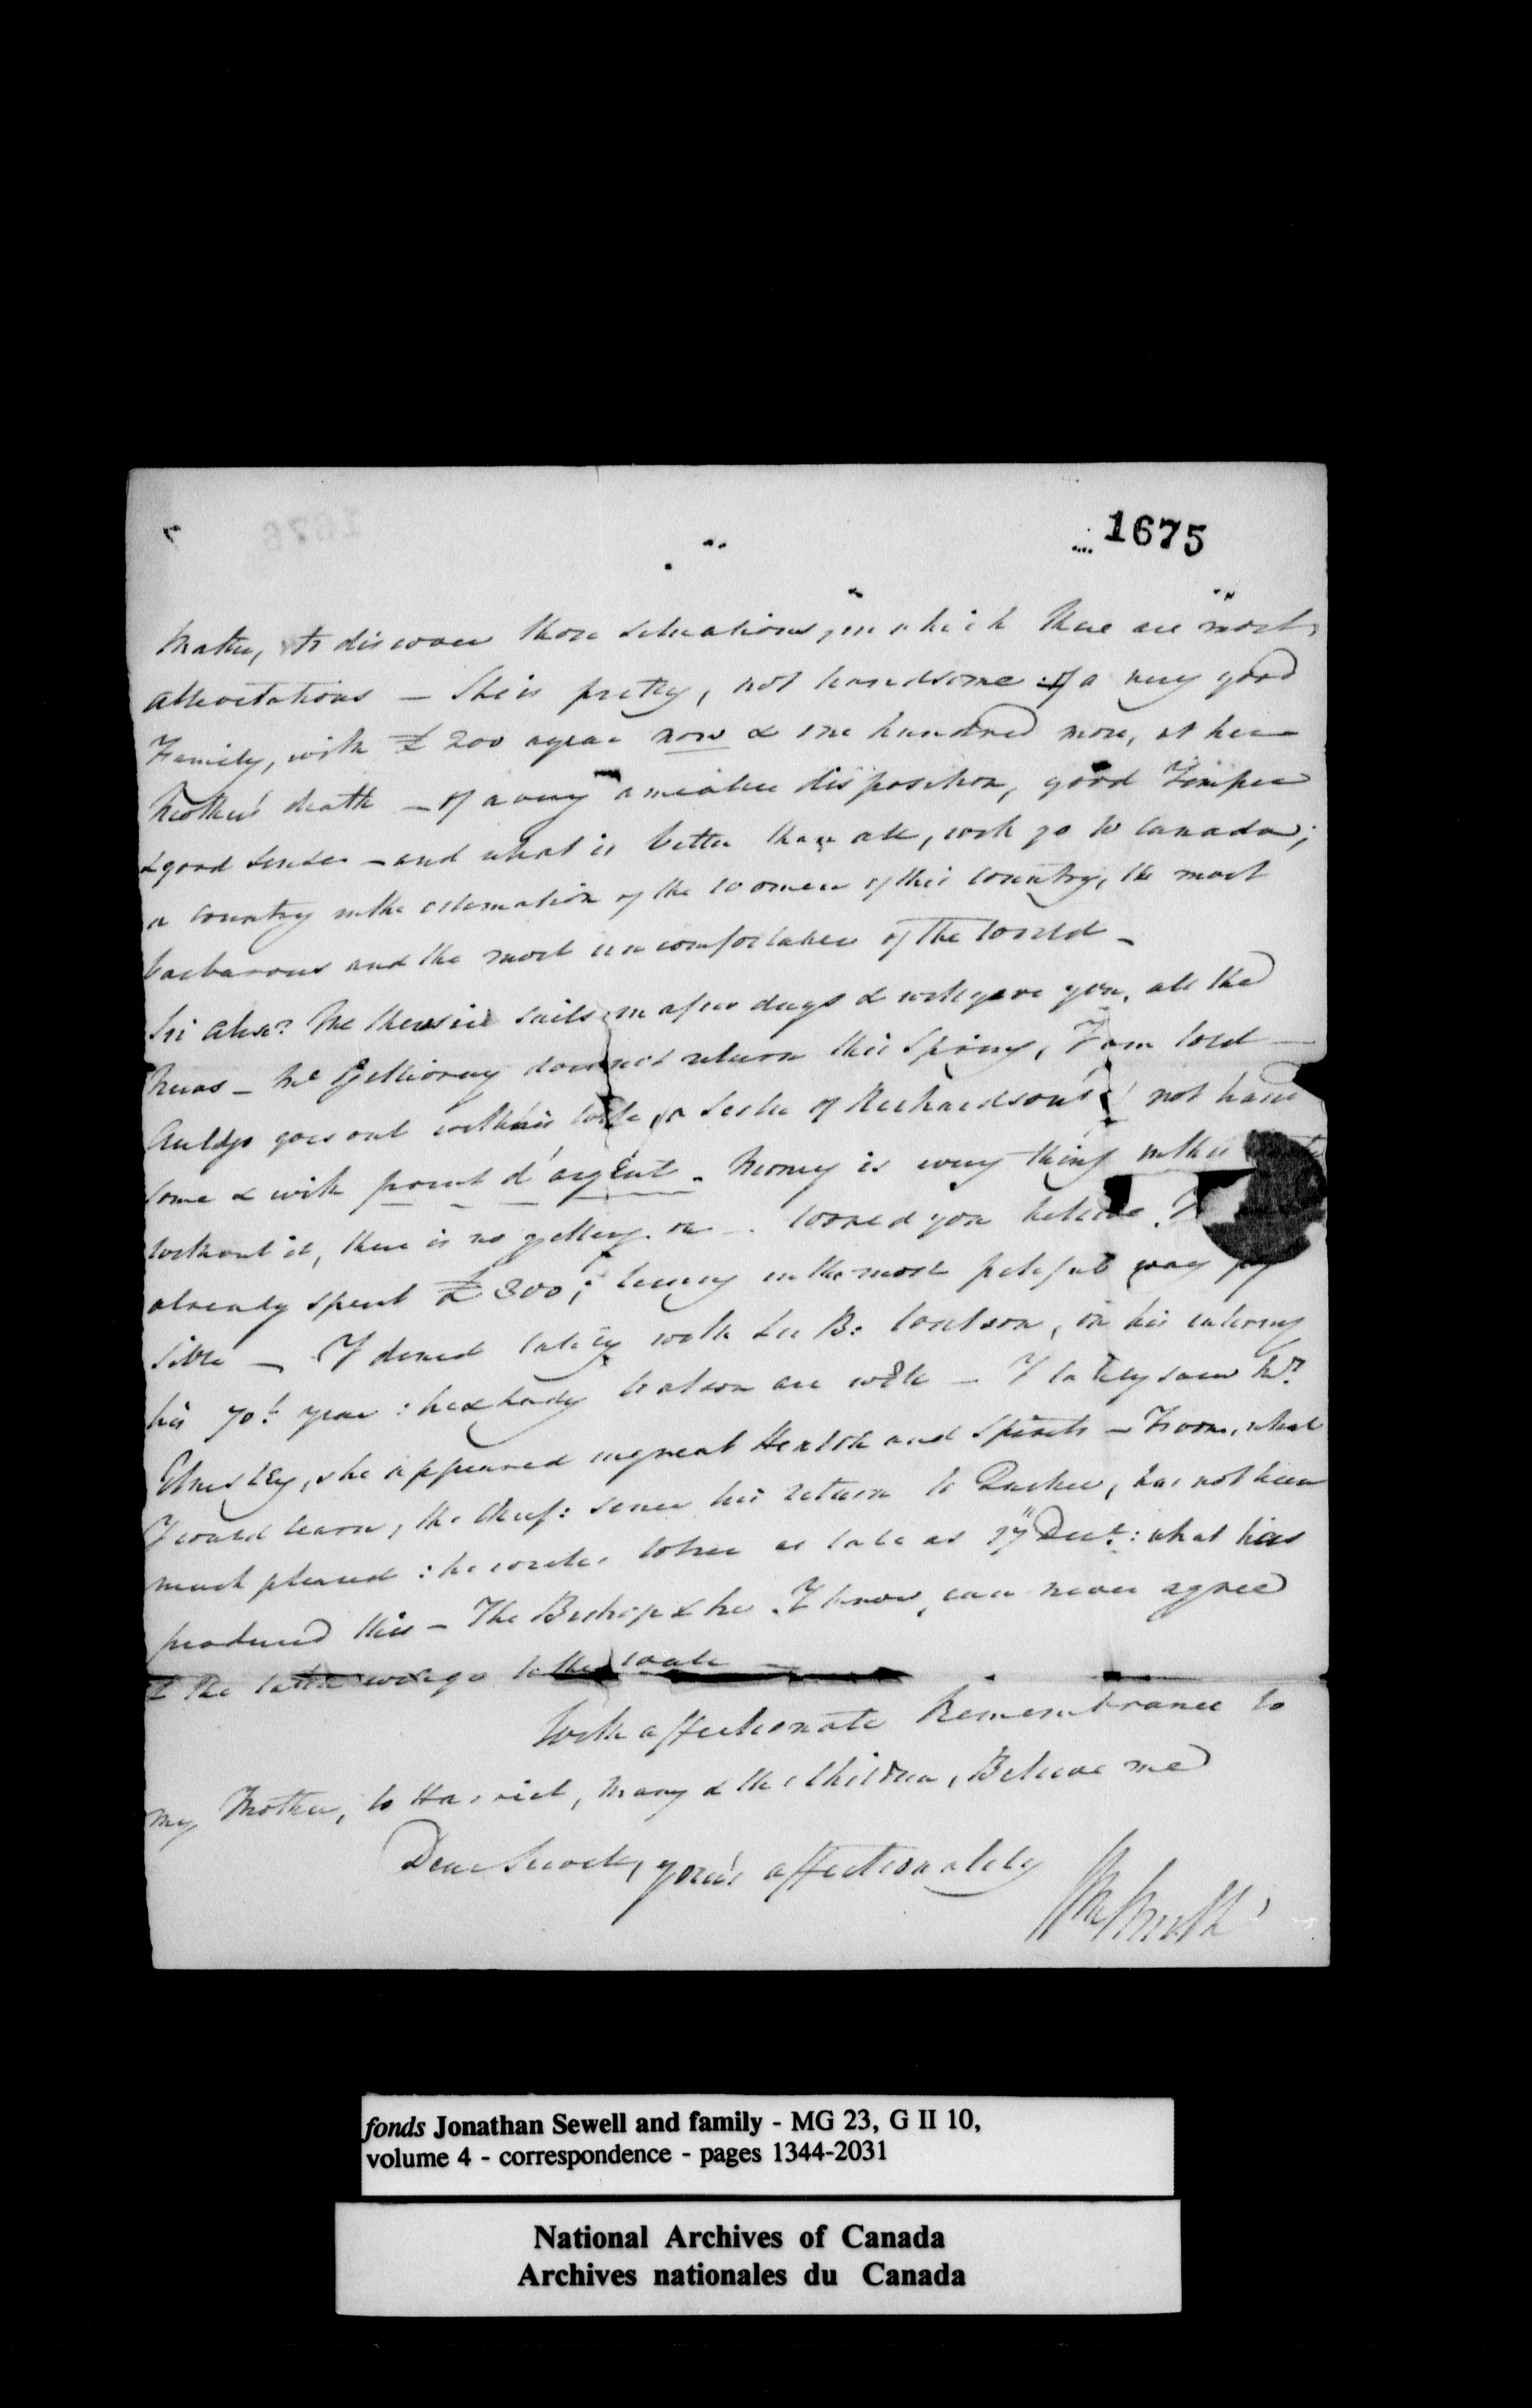 1675
matter, to discover those situations, in which there are most
attestations — She is pretty, not handsome: of a very good
Family, with £200 a year now & one hundred more, at her
Mother's death — of a very amiable disposition, good Temper
& good sense — and what is better than all, will go to Canada;
a country in the estimation of the women of this country, the most
barbarous and the most uncomfortable of the world —
Sir Alexr. McKensie sails in a few days & will give you, all the
News — McGillivray does not return this Spring, I am told —
Auldjo goes out with his wife, a Sister of Richardson's not hand
some & with point d'argent. Money is every thing in this
without it, there is no getting on — would you believe, I
already spent £300; living in the most pitiful way pos
sible — I dined lately with Sir B: Watson, on his entering
his 70th. year: he & Lady Watson are well — I lately saw Mrs.
Elmsley, she appeared in great Health and Spirits — From, what
I could learn, the Chief: since his return to Quebec, has not been
much pleased: he writes to her as late as 17 Decr.: what has
produced this — The Bishop & he, I know, can never agree
& the latter will go to the wall —
With affectionate Remembrance to
my Mother, to Harriet, Mary & the Children, Believe me
Dear Sewell, your's affectionately
Wm Smith
fonds Jonathan Sewell and family - MG 23, G II 10,
volume 4 - correspondence - pages 1344-2031
National Archives of Canada
Archives nationales du Canada